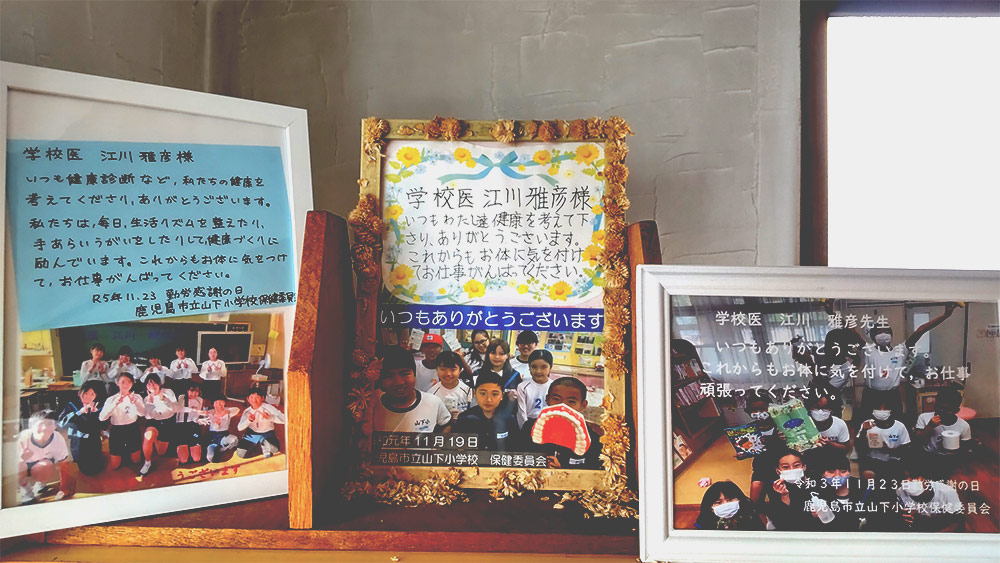 学校医 江川 雅彦 様
いつも健康診断など、私たちの健康を
考えてくださり、ありがとうございます。
私たちは、毎日、生活リズムを整えたり、
手あらいうがいをしたりして、健康づくりに
励んでいます。これからもお体に気をつけ
て、お仕事がんばってください。
R5年 11.23 勤労感謝の日
鹿児島市立山下小学校保健委員
学校医 江川雅彦様
いつもわたし達健康を考えて下
さり、ありがとうございます。
これからもお体に気を付け
てお仕事がんばってください。
いつもありがとうございます
元年 11月19日
児島市立山下小学校 保健委員会
学校医 江川 雅彦先生
いつもありがとうございます。
これからもお体に気を付けて、お仕事
頑張ってください。
令和3年11月23日勤労感謝の日
鹿児島市立山下小学校保健委員会